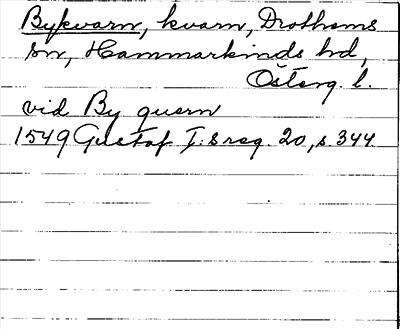 Bykvarn, kvarn, Drothems
sn, Hammarkinds hd,
Österg. l.
vid By quern
1549 Gustaf I:s reg. 20, s. 344